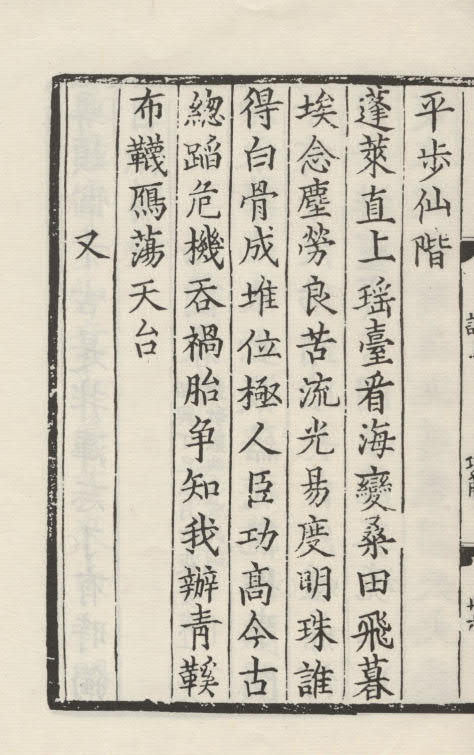 平步仙階
蓬萊直上瑶臺看海變桑田飛暮
埃念塵勞良苦流光易度明珠誰
得白骨成堆位極人臣功髙今古
總蹈危機吞禍胎争知我辦青鞵
布韈鴈蕩天台
又